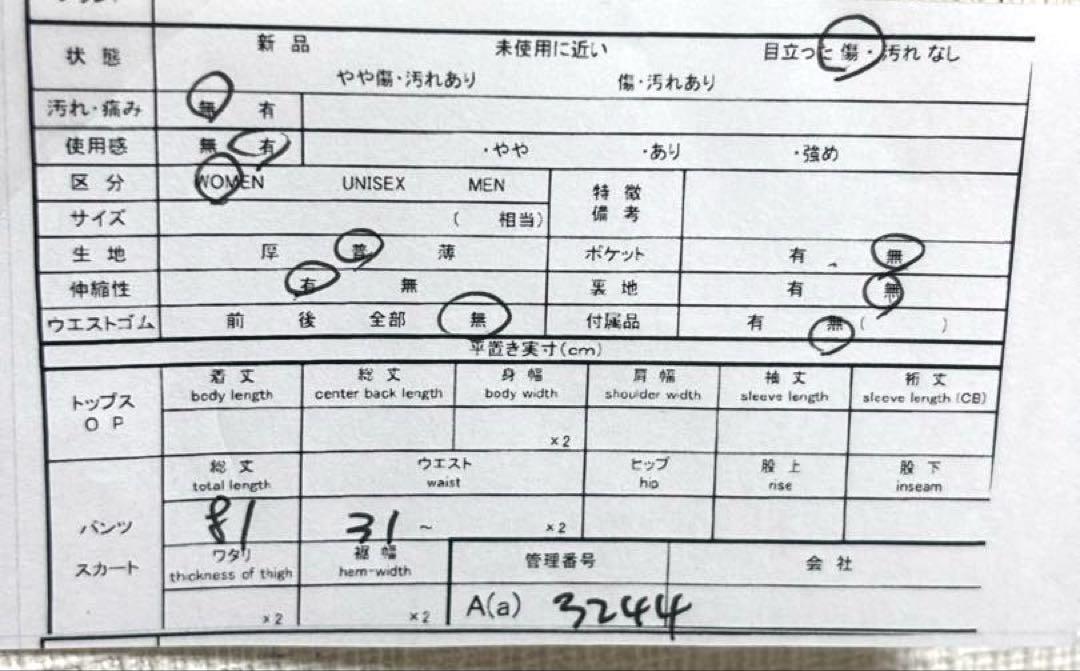 状態 新品 未使用に近い 目立った傷・汚れなし
やや傷・汚れあり 傷・汚れあり
汚れ・痛み 無 有
使用感 無 有 ・やや ・あり ・強め
区分 WOMEN UNISEX MEN 特徴
備考
サイズ ( 相当)
生地 厚 普 薄 ポケット 有 無
伸縮性 有 無 裏地 有 無
ウエストゴム 前 後 全部 無 付属品 有 無 ( )
平置き実寸(cm)
トップス
OP
着丈 総丈 身幅 肩幅 袖丈 裄丈
body length center back length body width shoulder width sleeve length sleeve length (CB)
×2
パンツ
スカート
総丈 ウエスト ヒップ 股上 股下
total length waist hip rise inseam
81 31 ~ ×2
ワタリ 裾幅 管理番号 会社
thickness of thigh hem-width
×2 ×2 A(a) 3244